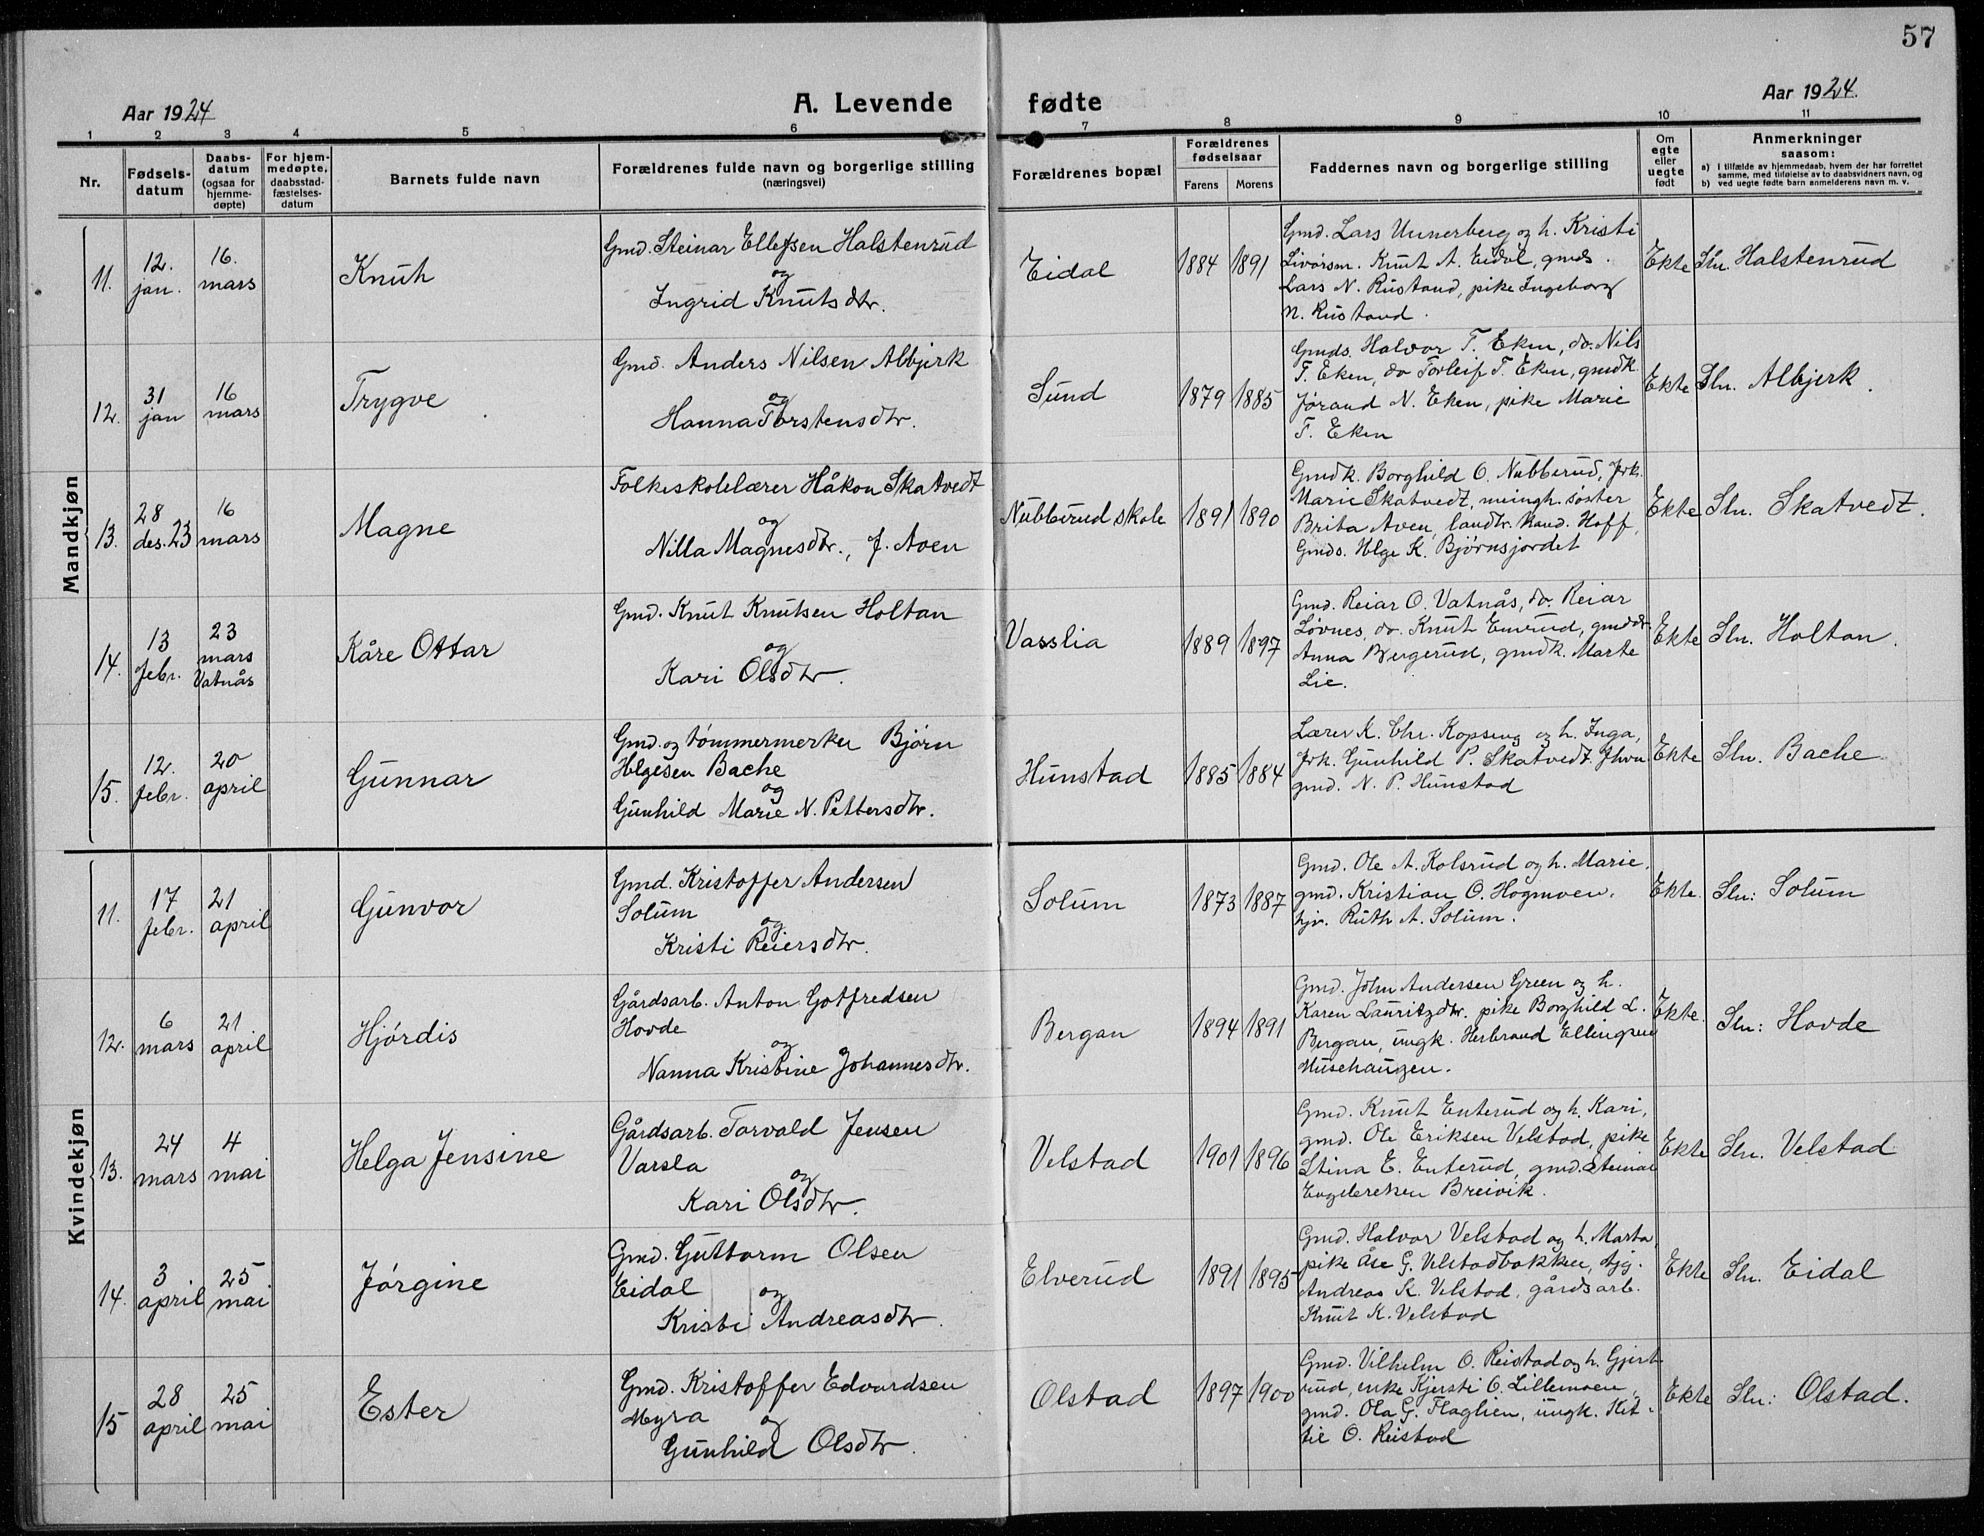 57
Aar 1924
A. Levende fødte
Aar 1924.
1 2 3 4 5 6 7 8 9 10 11
Nr.
Fødsels-
datum
Daabs-
datum
(ogsaa for
hjemme-
døpte)
For hjem-
medøpte,
daabsstad-
fæstelses-
datum
Barnets fulde navn
Forældrenes fulde navn og borgerlige stilling
(næringsvei)
Forældrenes bopæl
Forældrenes
fødselsaar
Farens Morens
Faddernes navn og borgerlige stilling
Om
egte
eller
uegte
født
Anmerkninger
saasom:
a) i tilfælde av hjemmedaab, hvem der har forrettet
samme, med tilføielse av to daabsvidners navn, og
b) ved uegte fødte barn anmelderens navn m. v.
Mandkjøn
11.
12.
jan.
16.
mars
Knuth
Gmd. Steinar Ellefsen Halstenrud
og
Ingrid Knutsdtr.
Eidal
1884 1891
Gmd. Lars Unnerberg og h. Kristi
Knut A. Eidal, gmds.
Lars N. Rustand, pike Ingeborg
N. Rustand.
Ekte
Sln. Halstenrud
12.
31
jan
16
mars
Trygve
Gmd. Anders Nilsen Albjerk
og
Hanna Torstensdtr.
Sund
1879 1885
Gmds. Halvor T. Eken, do. Nils
T. Eken, do Torleif T. Eken, gmdk.
Jørand N. Eken, pike Marie
T. Eken
Ekte
Sln. Albjerk.
13.
28
des. 23
16
mars
Magne
Folkeskolelærer Håkon Skatvedt
og
Nilla Magnesdtr., f. Aven
Nubberud skole
1891 1890
Gmdk. Borghild O. Nubberud, frk.
Marie Skatvedt, meingh. søster
Brita Aven, landbr. kand. Hoff,
Gmds. Helge K. Bjørnsjordet
Ekte
Sln. Skatvedt.
14.
13
febr.
23
mars
Vatnås
Kåre Ottar
Gmd. Knut Knutsen Holtan
og
Kari Olsdtr.
Vasslia
1889 1897
Gmd. Reiar O. Vatnås, do. Reiar
Løvnes, do. Knut Enerud, gmddtr.
Anna Bergerud, gmdk. Marte
Lie.
Ekte
Sln. Holtan.
15.
12.
febr.
20
april
Gunnar
Gmd. og tømmermerker Bjørn
Helgesen Bache
og
Gunhild Marie N. Pettersdtr.
Hunstad
1885 1884
Lærer K. Chr. Kopseng og h. Inga,
frk. Gunhild P. Skatvedt
gmd. N. P. Hunstad
Ekte
Sln. Bache
Kvindekjøn
11.
17
febr.
21
april
Gunvor
Gmd. Kristoffer Andersen
Solum
og
Kristi Reiersdtr.
Solum
1873 1887
Gmd. Ole A. Kolsrud og h. Marie,
gmd. Kristian O. Høgmoen.
hjv. Ruth A. Solum.
Ekte.
Sln: Solum
12.
6
mars
21
april
Hjørdis
Gårdsarb. Anton Gotfredsen
Hovde
og
Nanna Kristine Johannesdtr.
Bergan
1894 1891
Gmd. John Andersen Green og h.
Karen Lauritzdtr. pike Borghild L.
Bergan, ungk. Herbrand Ellingsen
Musehaugen.
Ekte.
Sln: Hovde
13.
24
mars
4
mai
Helga Jensine
Gårdsarb. Torvald Jensen
Varsla
og
Kari Olsdtr.
Velstad
1901 1896
Gmd. Knut Enterud og h. Kari,
gmd. Ole Eriksen Velstad, pike
Stina E. Enterud, gmd. Steinar
Engebretsen Breivik.
Ekte
Sln. Velstad
14.
3
april
25
mai
Jørgine
Gmd. Guttorm Olsen
Eidal
og
Kristi Andreasdtr.
Elverud
1891 1895
Gmd. Halvor Velstad og h. Marta,
pike Åse G. Velstadbakken, tjg.
Andreas K. Velstad, gårdsarb.
Knut K. Velstad
Ekte
Sln. Eidal
15
28
april
25
mai
Ester
Gmd. Kristoffer Edvardsen
Myra
og
Gunhild Olsdtr.
Olstad
1897 1900
Gmd. Vilhelm O. Reistad og h. Gjert-
rud, enke Kjersti O. Lillemoen,
gmd. Ola G. Flaglien, ungk. Kit-
til O. Reistad
Ekte
Sln: Olstad.